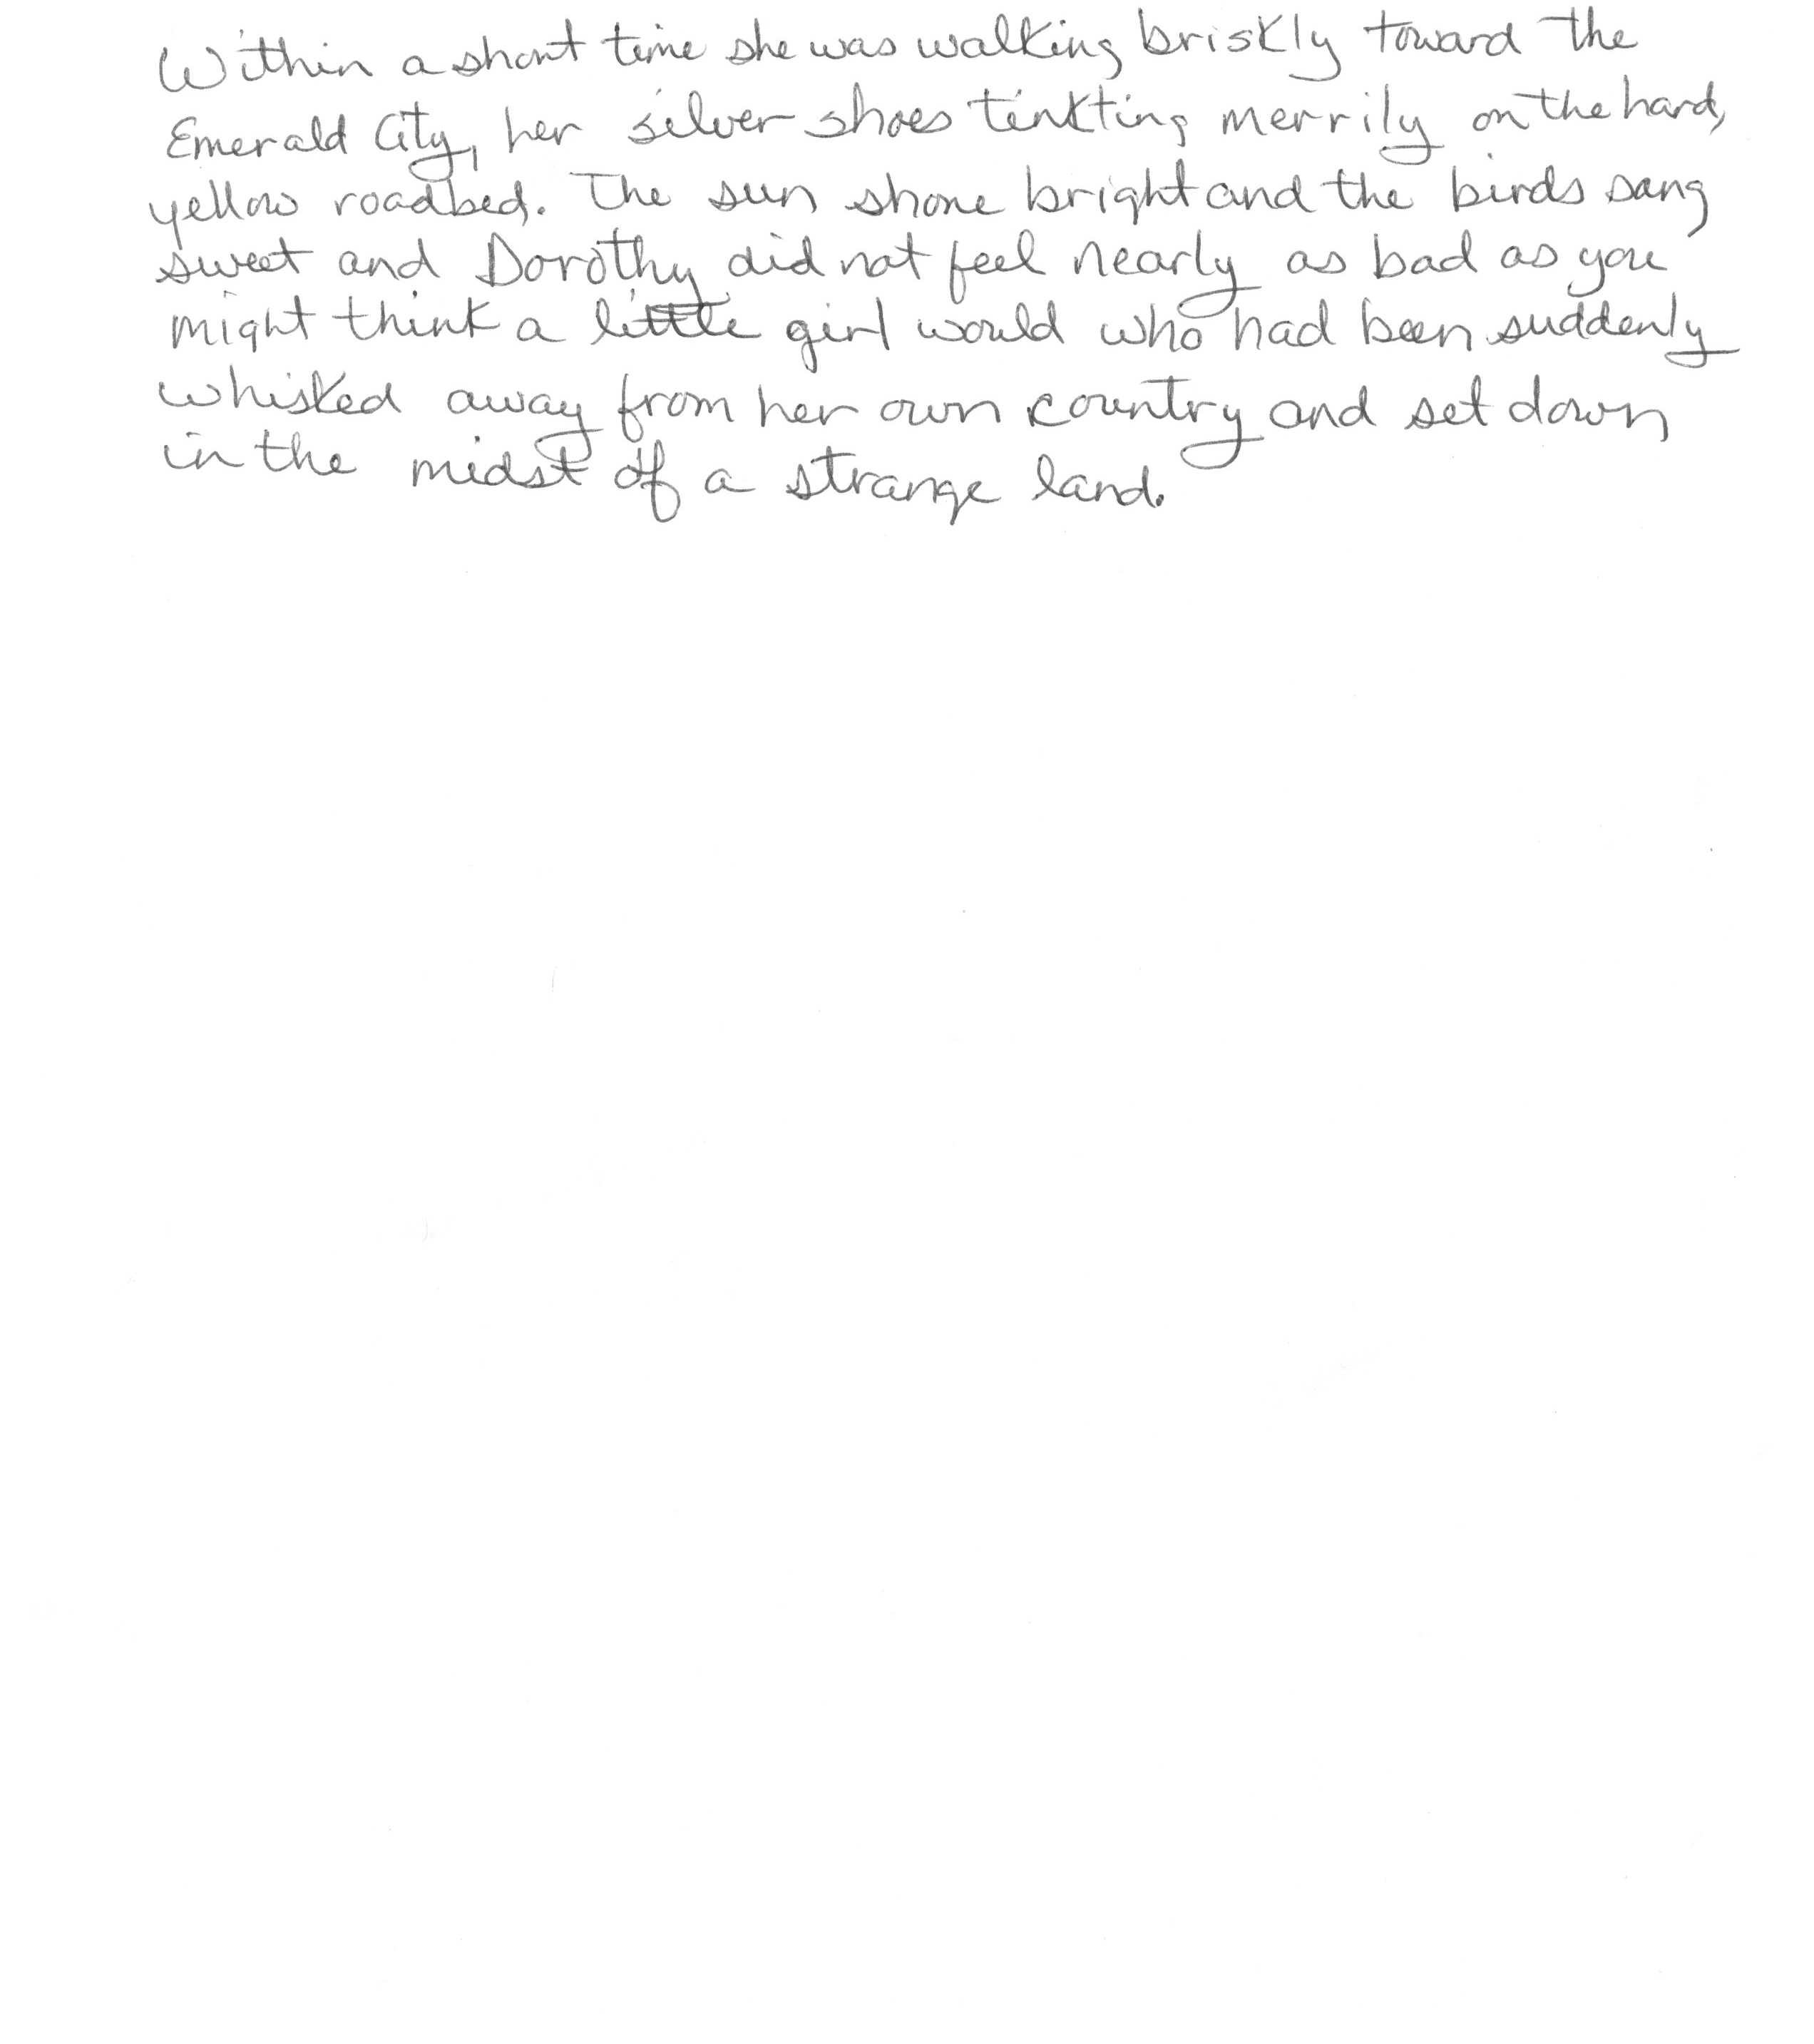 Within a short time she was walking briskly toward the
Emerald City, her silver shoes tinkting merrily on the hard,
yellow roadbed. The sun shone bright and the birds sang
sweet and Dorothy did not feel nearly as bad as you
might think a little girl would who had been suddenly
whisked away from her own country and set down
in the midst of a strange land.